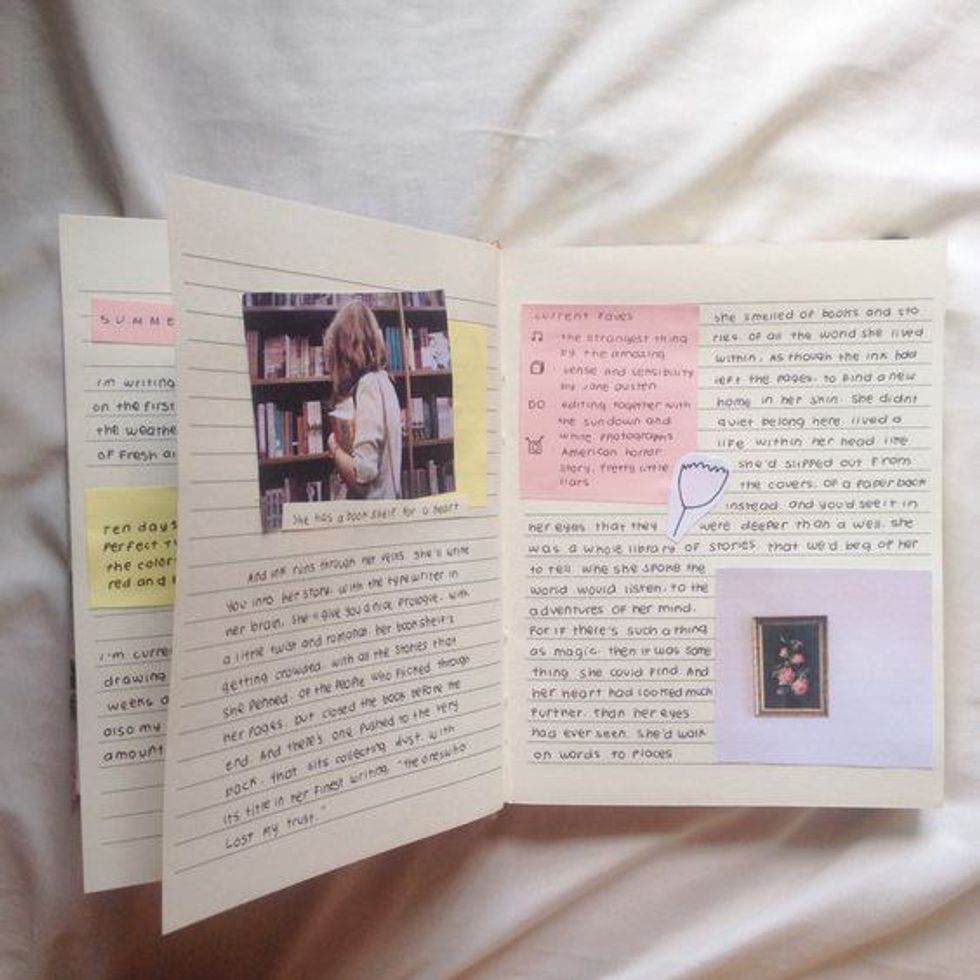 SUMME
i'm writing
on the first
the weathe
of fresh ai
ten days
perfect t
the color
red and
i'm curre
drawing
weeks a
also my
amount
She has a book shelf for a heart
And ink runs through her veins. She'll write
you into her story. with the typewriter in
her brain. She'll give you a nice prologue. with
a little twist and romance. her bookshelf's
getting crowded. with all the stories that
she penned. of the people who flicked through
her pages. but closed the book before the
end. And there's one pushed to the very
back. that sits collecting dust. with
its title in her finest writing. "the ones who
Lost my trust."
current faves
the strangest thing
by the amazing
sense and sensibility
by jane austen
editing together with
the sundown and
white photographs
American horror
story, Pretty little
liars
she smelled of books and sto
ries. of all the word she lived
within. As though the ink had
left the pages. to find a new
home in her skin. She didnt
quiet belong here. lived a
life within her head like
she'd slipped out from
the covers. of a paperback
instead. and you'd see it in
her eyes that they were deeper than a well. she
was a whole library of stories that we'd beg of her
to tell. whe she spoke the
world would listen. to the
adventures of her mind.
for if there's such a thing
as magic. then it was some
thing she could find. And
her heart had looked much
further. than her eyes
had ever seen. she'd walk
on words to places